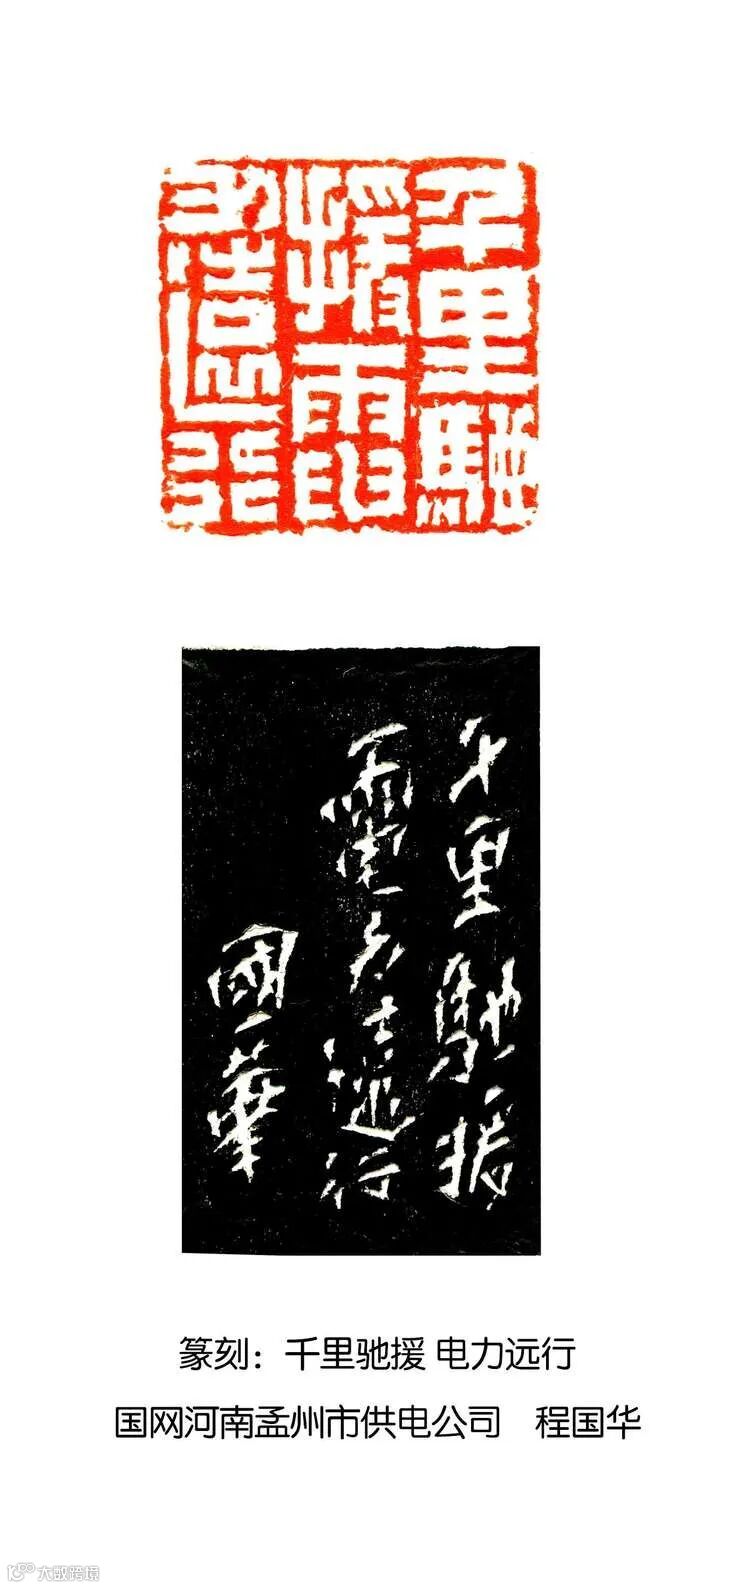 千里馳
援電
力遠行
千里馳援
電力遠行
國華
篆刻：千里驰援 电力远行
国网河南孟州市供电公司 程国华
大数跨境